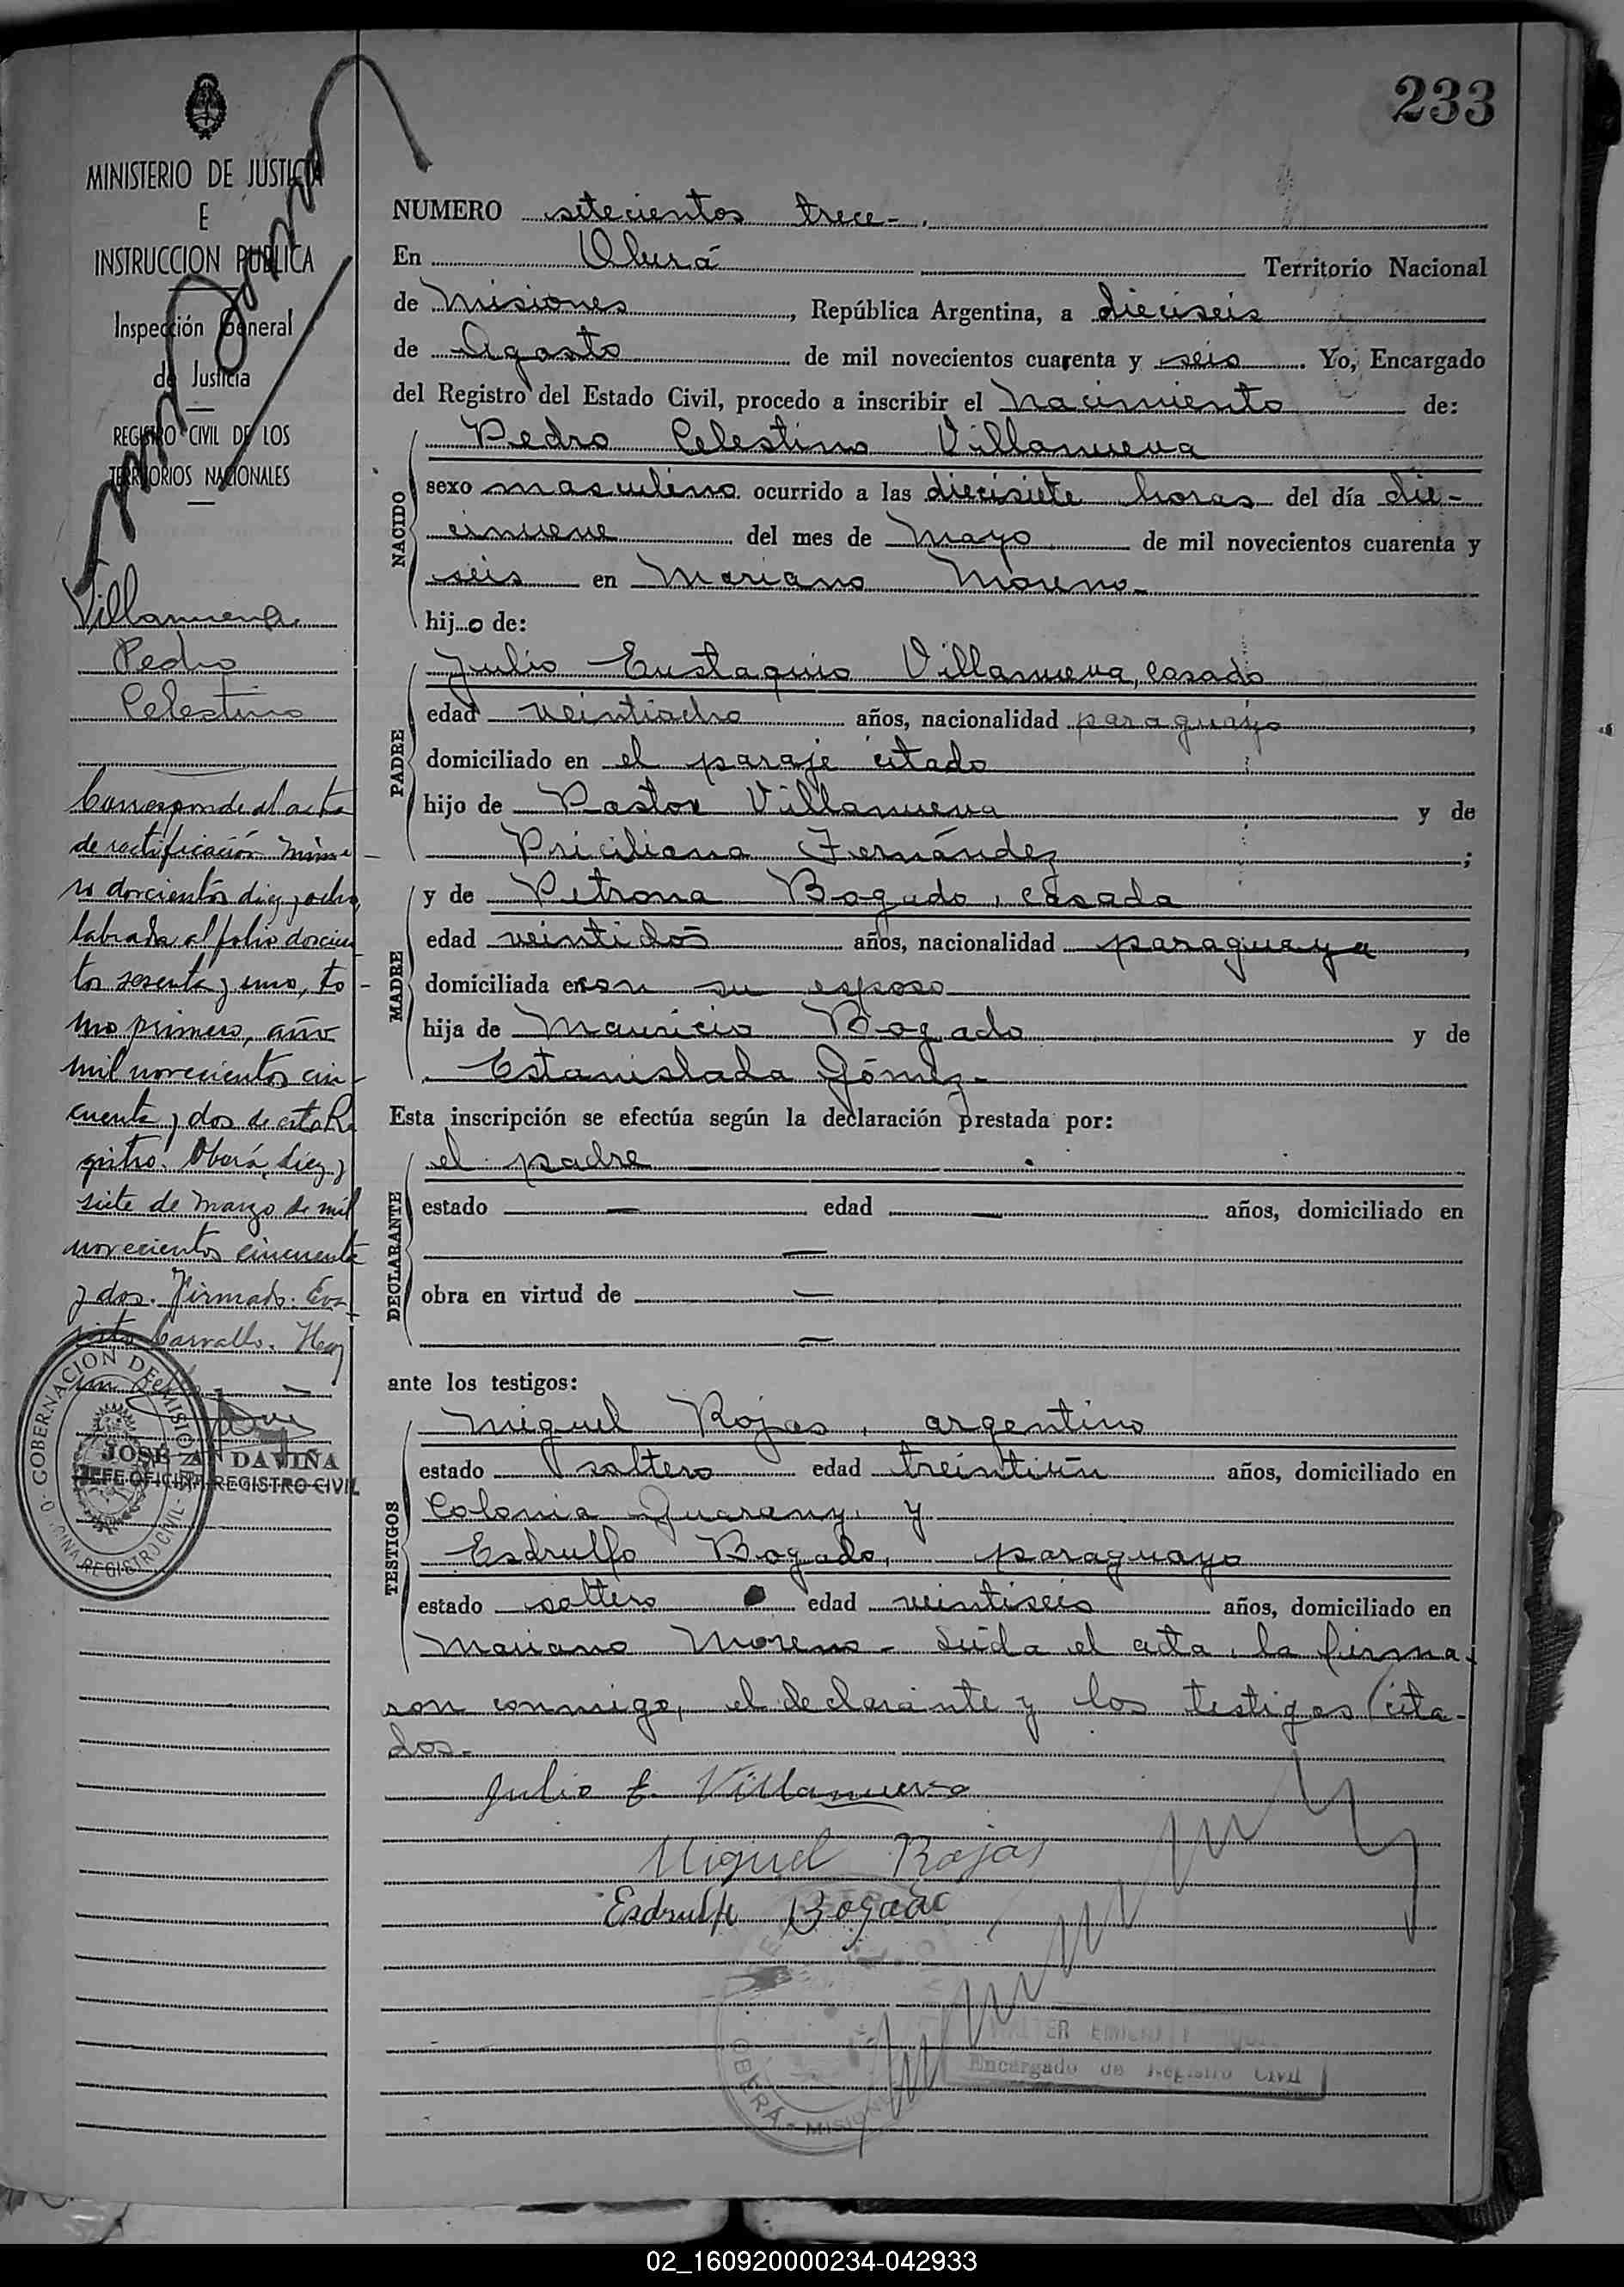 233
MINISTERIO DE JUSTICIA
E
INSTRUCCION PUBLICA
Inspección General
de Justicia
REGISTRO CIVIL DE LOS
TERRITORIOS NACIONALES
Villanueva
Pedro
Celestino
Corresponde al acta
de rectificación núme-
ro doscientos diez y ocho,
labrada al folio doscien
tos sesenta y uno, to-
mo primero, año
mil novecientos cin-
cuenta y dos de este Re
gistro. Oberá, diez y
siete de Marzo de mil
novecientos cincuenta
y dos. Firmado. Eva-
risto Carvallo. Hay
un sello
GOBERNACION DE MISIONES
OFICINA REGISTRO CIVIL
JOSÉ A. DAVIÑA
JEFE OFICINA REGISTRO CIVIL
NUMERO setecientos trece-.
En Oberá Territorio Nacional
de Misiones, República Argentina, a dieciseis
de Agosto de mil novecientos cuarenta y seis. Yo, Encargado
del Registro del Estado Civil, procedo a inscribir el Nacimiento de:
NACIDO
Pedro Celestino Villanueva
sexo masculino ocurrido a las diecisiete horas del día die-
cinueve del mes de Mayo de mil novecientos cuarenta y
seis en Mariano Moreno-
hijo de:
PADRE
Julio Eustaquio Villanueva, casado
edad veintiocho años, nacionalidad paraguayo,
domiciliado en el paraje citado
hijo de Pastor Villanueva y de
Priciliana Fernández;
MADRE
y de Petrona Bogado, casada
edad veintidos años, nacionalidad paraguaya,
domiciliada en con su esposo
hija de Mauricio Bogado y de
Estanislada Gómez-
Esta inscripción se efectúa según la declaración prestada por:
DECLARANTE
el padre
estado — edad — años, domiciliado en
—
obra en virtud de —
—
ante los testigos:
TESTIGOS
Miguel Rojas, argentino
estado soltero edad treintiún años, domiciliado en
Colonia Guarany, y
Esdrulfo Bogado, paraguayo
estado soltero edad veintiseis años, domiciliado en
Mariano Moreno- Leída el acta, la firma-
ron conmigo, el declarante y los testigos cita-
dos-
Julio E. Villanueva
Miguel Rojas
Esdrulfo Bogado
OBERÁ - MISIONES
Encargado de Registro Civil
02_160920000234-042933